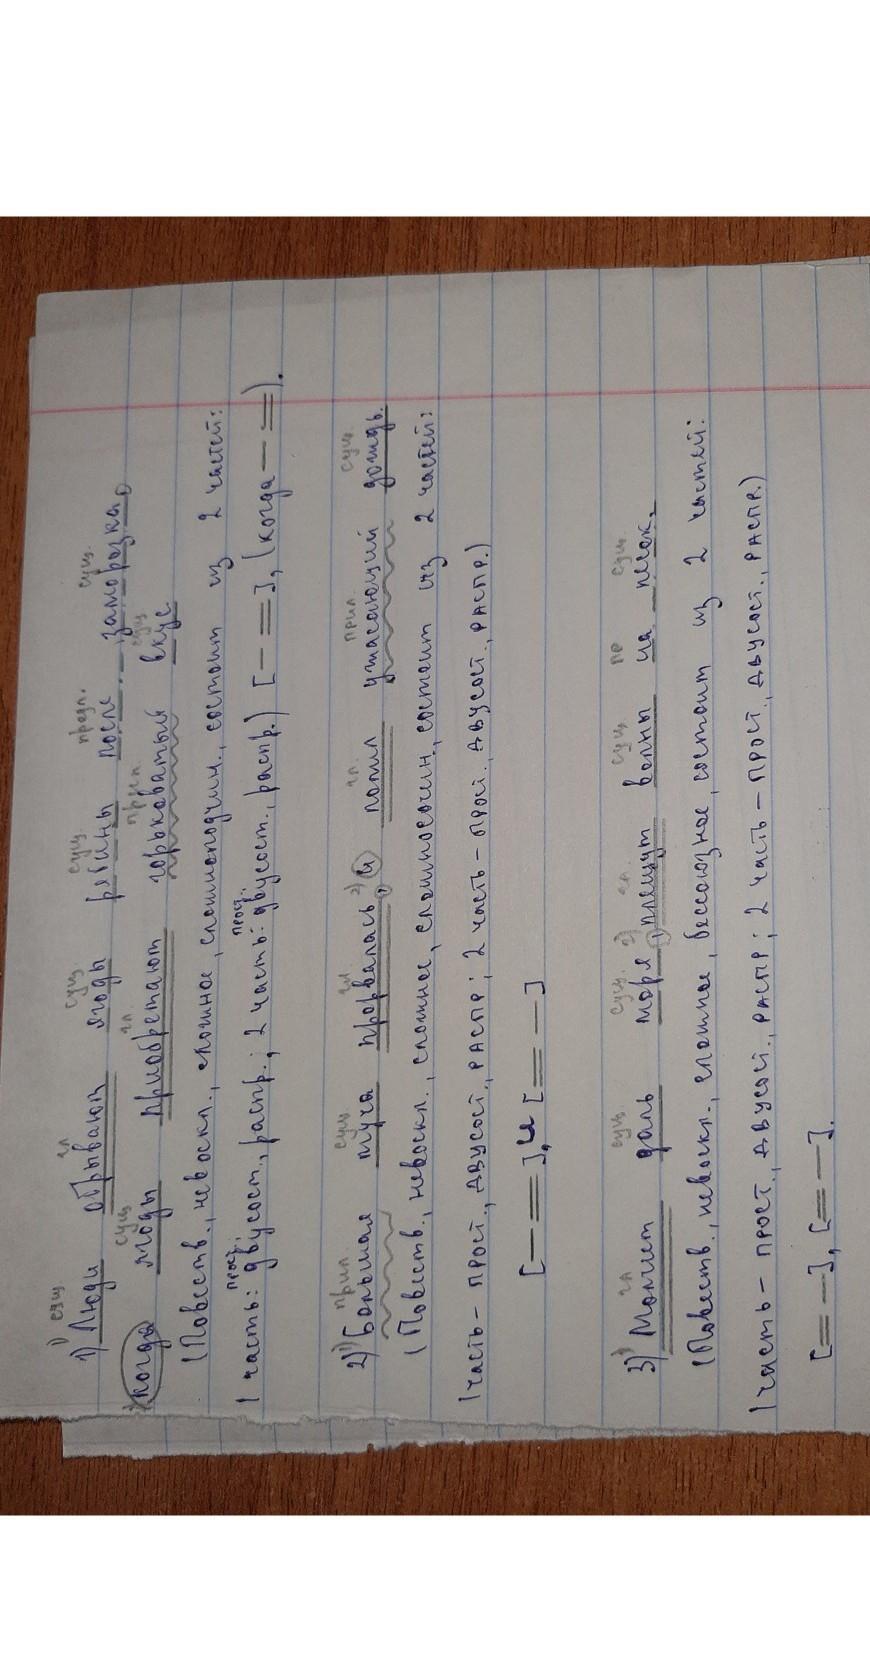 1) сущ. гл. сущ. сущ. предл. сущ.
1) Люди обрывают ягоды рябины после заморозка,
сущ. гл. прил. сущ.
когда ягоды приобретают горьковатый вкус.
(Повеств., невоскл., сложное, сложноподчин., состоит из 2 частей:
прост., прост.,
1 часть: двусост., распр.; 2 часть: двусост., распр.) [— =], (когда — =).
прил. сущ. гл. гл. прил. сущ.
2) 1) Большая туча прорвалась, 2) и полил ужасающий дождь.
(Повеств., невоскл., сложное, сложносочин., состоит из 2 частей:
1 часть – прост., двусост., распр; 2 часть – прост., двусост., распр.)
[— =], и [= —]
гл. сущ. сущ. гл. сущ. пр сущ.
3) 1) Молчит даль моря, 2) плещут волны на песок.
(Повеств., невоскл., сложное, бессоюзное, состоит из 2 частей:
1 часть – прост., двусост., распр; 2 часть – прост., двусост., распр.)
[= —], [= —].